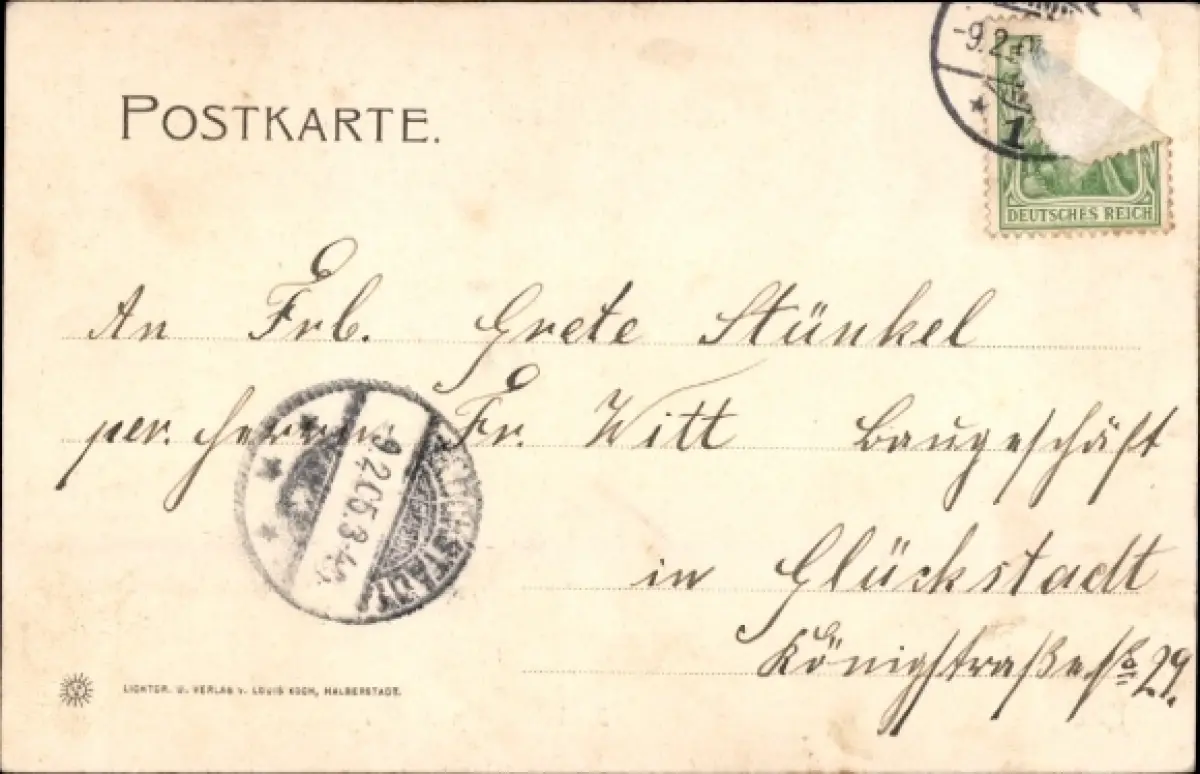 -9.2.0
POSTKARTE.
1
DEUTSCHES REICH
An Frl. Grete Stünkel
per. Herrn Fr. Witt Baugeschäft
-9.2.05.3-4
GLÜCKSTADT
in Glückstadt
Königstraße 29.
LICHTDR. U. VERLAG V. LOUIS KOCH, HALBERSTADT.